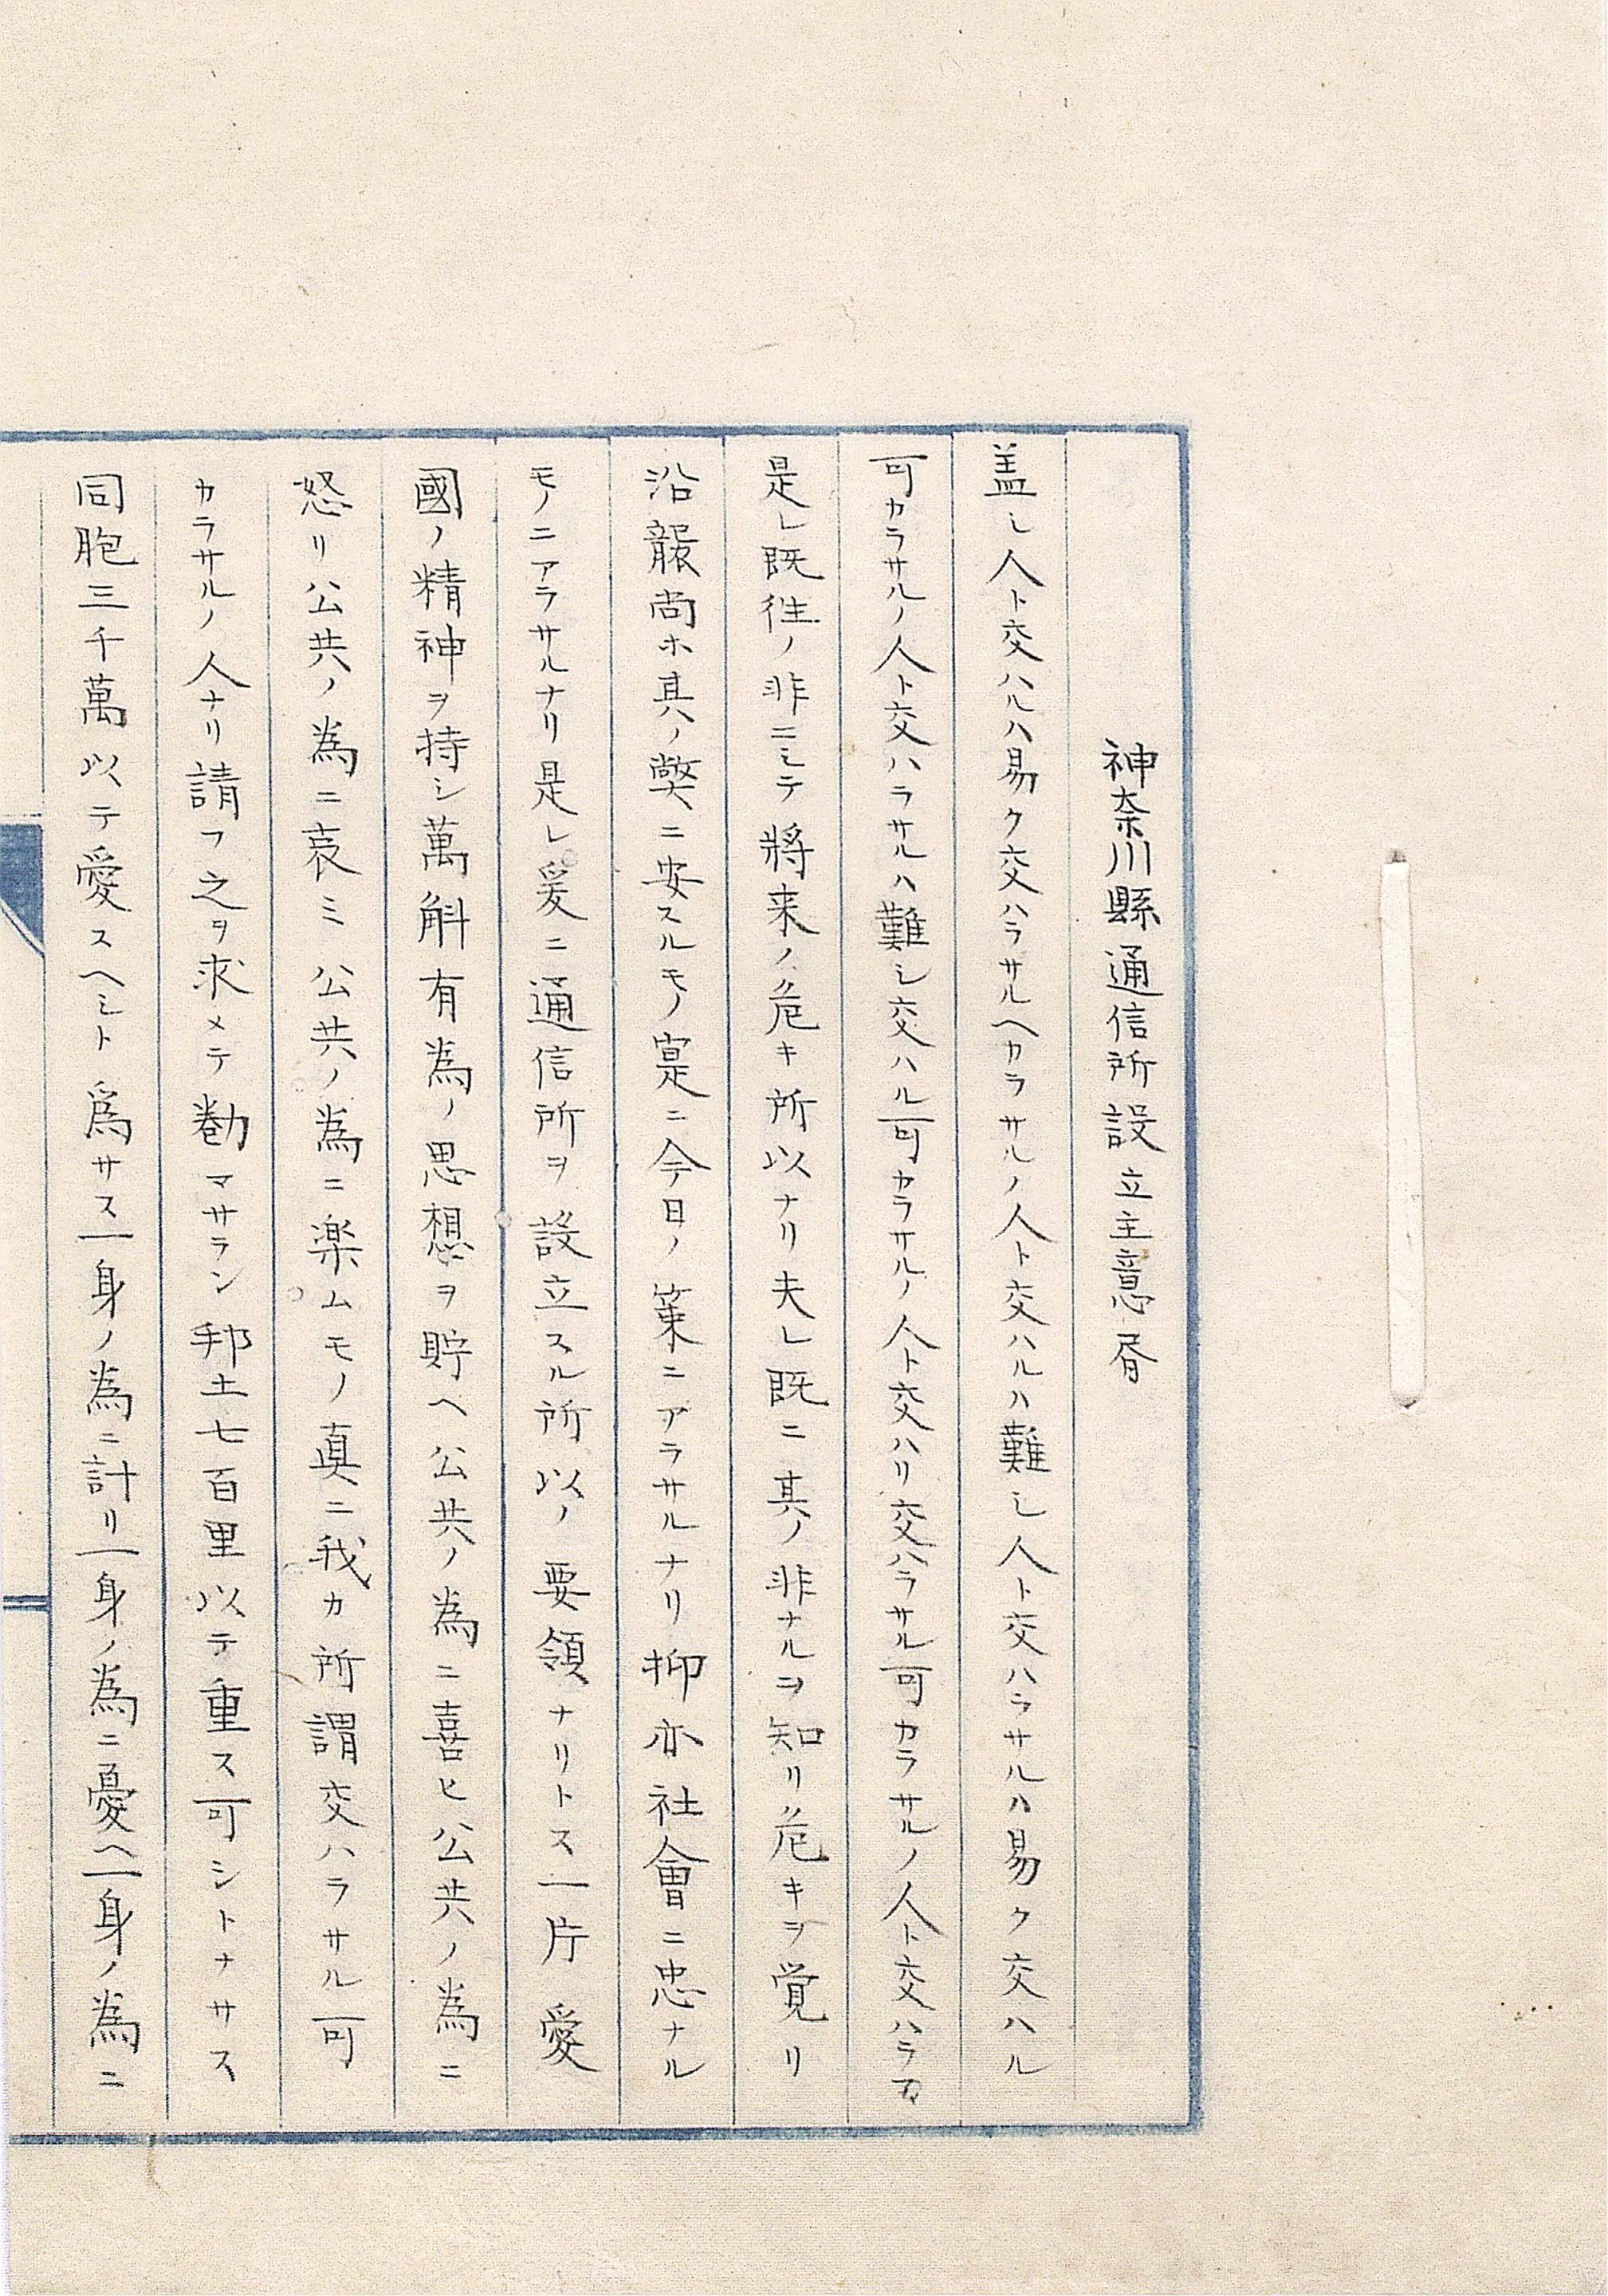 神奈川縣通信所設立主意胥
盖シ人ト交ハルハ易ク交ハラサルヘカラサルノ人ト交ハルハ難シ人ト交ハラサルハ易ク交ハル
可カラサルノ人ト交ハラサルハ難シ交ハル可カラサルノ人ト交ハリ交ハラサル可カラサルノ人ト交ハラス
是レ既徃ノ非ニシテ將来ノ危キ所以ナリ夫レ既ニ其ノ非ナルヲ知リ危キヲ覚リ
沿襲尚ホ其ノ獘ニ安スルモノ寔ニ今日ノ策ニアラサルナリ抑亦社會ニ忠ナル
モノニアラサルナリ是レ爰ニ通信所ヲ設立スル所以ノ要領ナリトス一片愛
國ノ精神ヲ持シ萬斛有為ノ思想ヲ貯ヘ公共ノ為ニ喜ヒ公共ノ為ニ
怒リ公共ノ為ニ哀ミ公共ノ為ニ楽ムモノ真ニ我カ所謂交ハラサル可
カラサルノ人ナリ請フ之ヲ求メテ勧マサラン邦土七百里以テ重ス可シトナサス
同胞三千萬以テ愛スヘシト爲サス一身ノ為ニ計リ一身ノ為ニ憂ヘ一身ノ為ニ